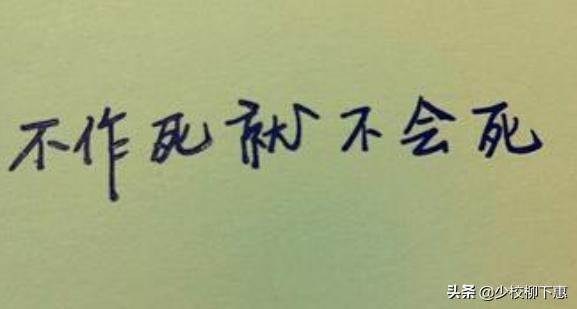 不作死就不会死
头条 @少校柳下惠